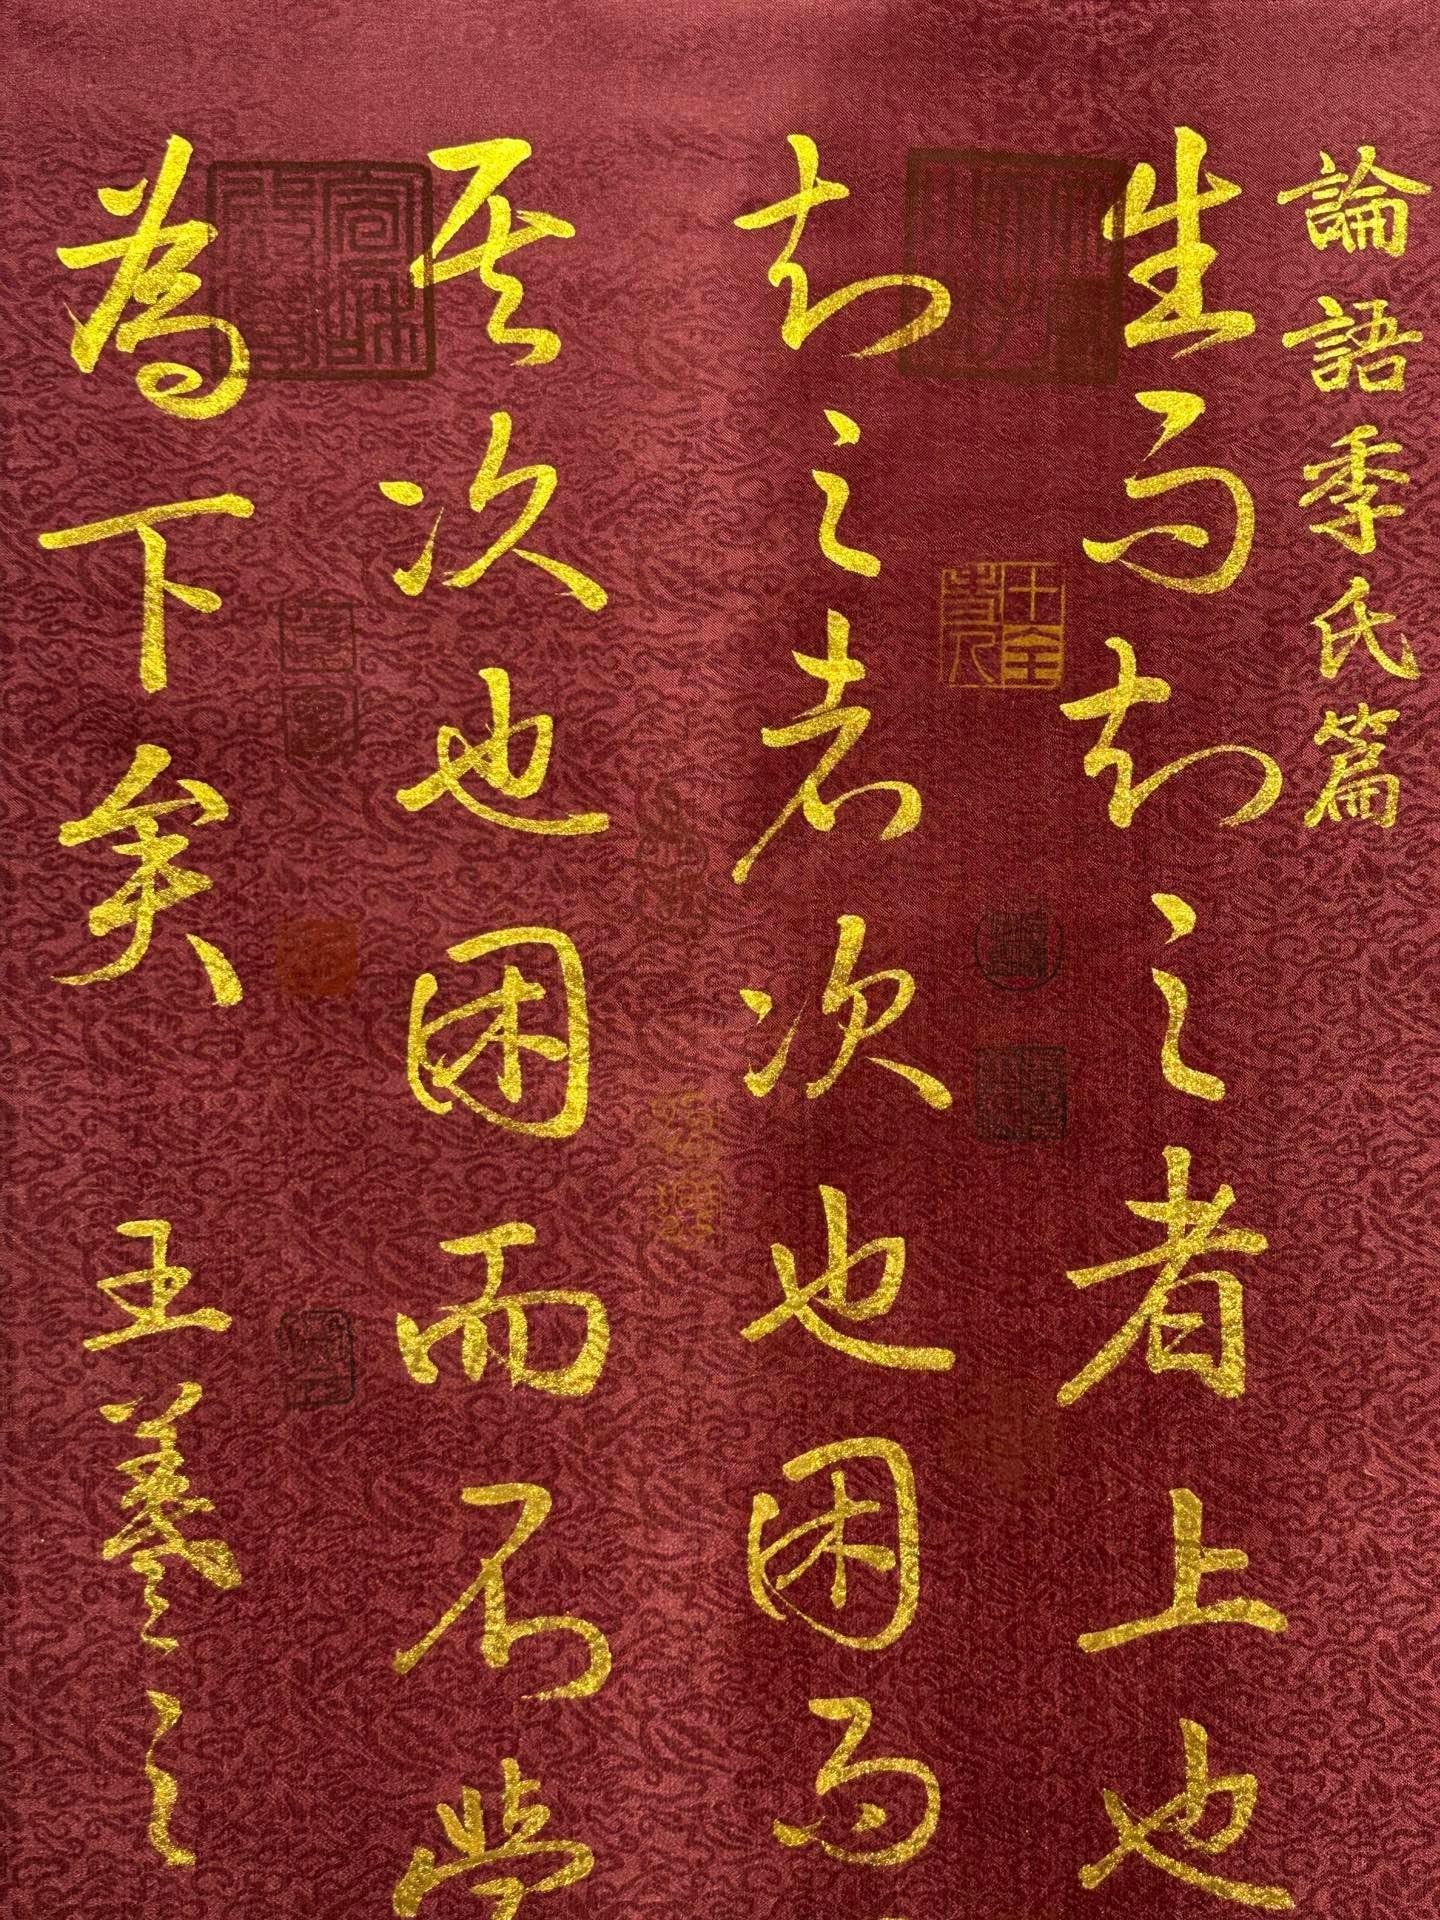 論語季氏篇
生而知之者上也
知之者次也困而
其次也困而不學
為下矣 王羲之
十全